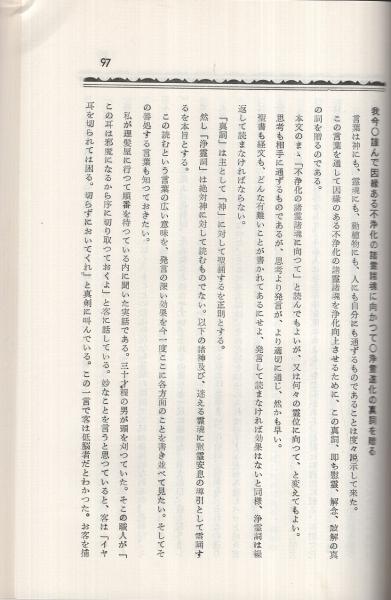 97
我今〇謹んで因縁ある不浄化の諸霊諸魂に向かつて〇浄霊進化の真詞を贈る
言葉は神にも、霊魂にも、動植物にも、人にも自分にも通ずるものであることは度々説示して来た。
この言葉を通して因縁のある不浄化の諸霊諸魂を浄化向上させるために、この真詞、即ち慰霊、解念、諭解の真
の詞を贈るのである。
本文のまゝ「不浄化の諸霊諸魂に向つて」と読んでもよいが、又は何々の霊位に向つて、と変えてもよい。
思考も相手に通ずるものであるが、思考より発言が、より適切に通じ、然かも早い。
聖書も経文も、どんな有難いことが書かれてあるにせよ、発言して読まなければ効果はないと同様、浄霊詞は繰
返して読まなければならない。
「真詞」は主として「神」に対して聖誦するを正則とする。
然し「浄霊詞」は絶対神に対して読むものでない。以下の諸神及び、迷える霊魂に慰霊安息の導引として霊誦す
るを本旨とする。
この読むという言葉の広い意味を、発言の深い効果を今一度ここに各方面のことを書き並べて見たい。そしてそ
の善処する言葉も知つておきたい。
私が理髪屋に行つて順番を待つている内に聞いた実話である。三十才程の男が頭を刈つていた。そこの職人が「
この耳は邪魔になるから序に切り取つておくよ」と客に話している。妙なことを言うと思つていると、客は「イヤ
耳を切られては困る。切らずにおいてくれ」と真剣に叫んでいる。この一言で客は低脳者だとわかつた。お客を捕